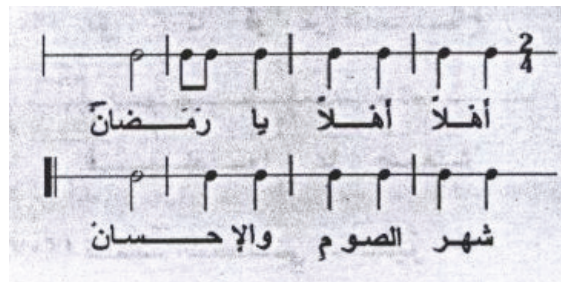 2
4
أهـلاً أهـــلاً يا رَمَــضانْ
شهـر الصوم والإحـــسانْ